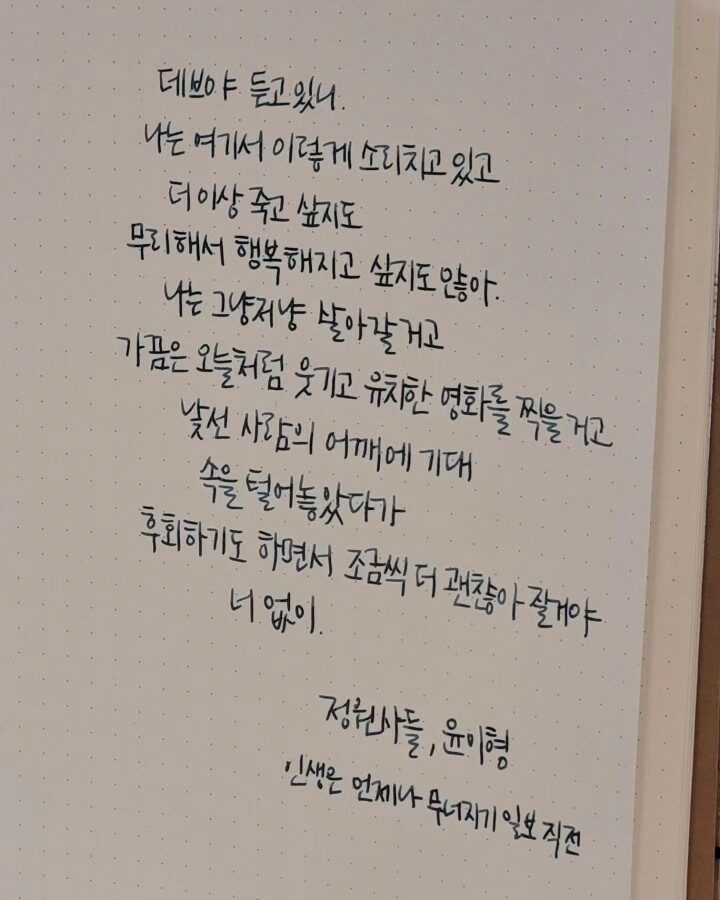 데브야 듣고있니.
나는 여기서 이렇게 소리치고 있고
더이상 죽고 싶지도
무리해서 행복해지고 싶지도않아.
나는 그냥저냥 살아갈거고
가끔은 오늘처럼 웃기고 유치한 영화를 찍을거고
낯선 사람의 어깨에 기대
속을 털어놓았다가
후회하기도 하면서 조금씩 더 괜찮아 질거야
너 없이.
정원사들, 윤이형
인생은 언제나 무너지기 일보 직전